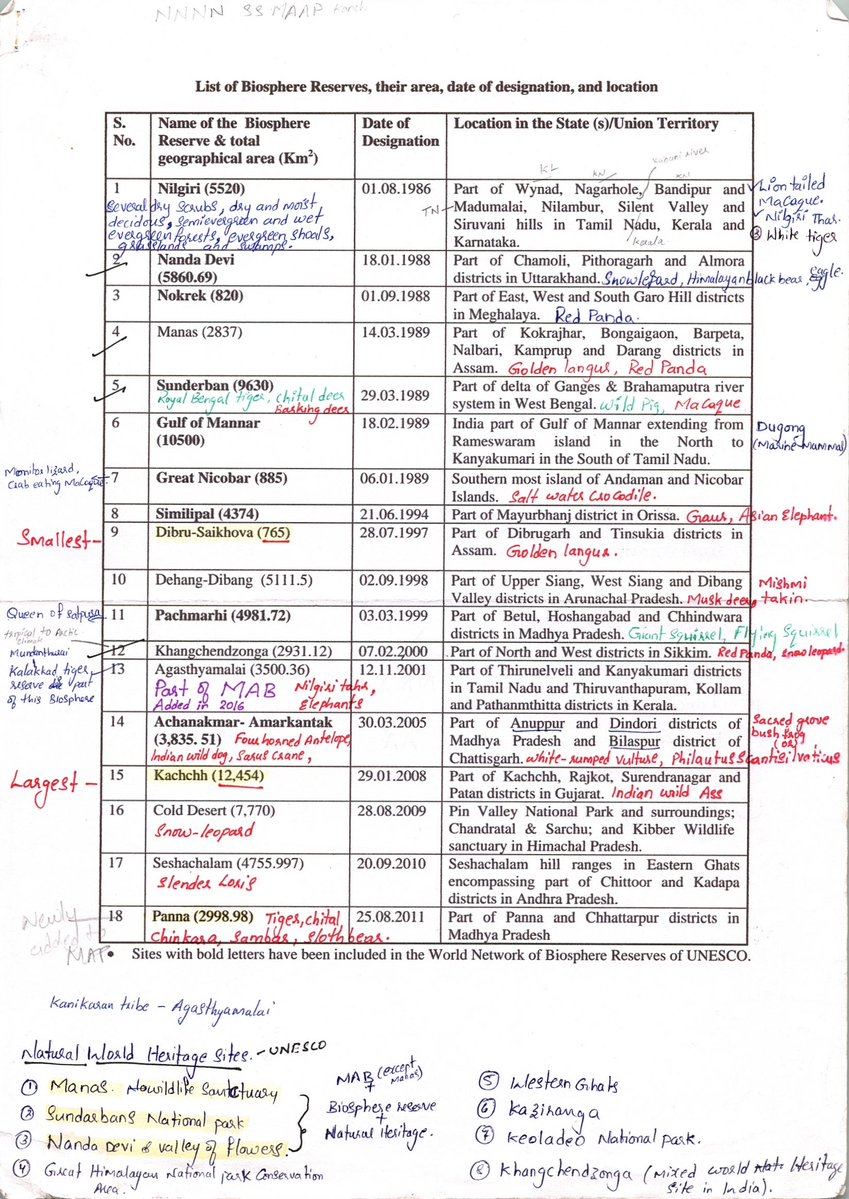 NNNN SS MAAP
List of Biosphere Reserves, their area, date of designation, and location
S. No. Name of the Biosphere Reserve & total geographical area (Km2) Date of Designation Location in the State (s)/Union Territory
1 Nilgiri (5520) 01.08.1986 Part of Wynad, Nagarhole, Bandipur and
Madumalai, Nilambur, Silent Valley and
Siruvani hills in Tamil Nadu, Kerala and
Karnataka.
KL
KN
KN
TN
Kerala
Several dry scrubs, dry and moist
decidous, semievergreen and wet
evergreen forests, evergreen shoals,
grasslands and swamps.
Lion tailed
Macaque.
Nilgiri Thar.
White tiger
2 Nanda Devi 18.01.1988 Part of Chamoli, Pithoragarh and Almora
(5860.69) districts in Uttarakhand. Snowlepard, Himalayan black bear, Eagle.
3 Nokrek (820) 01.09.1988 Part of East, West and South Garo Hill districts
in Meghalaya. Red Panda.
4 Manas (2837) 14.03.1989 Part of Kokrajhar, Bongaigaon, Barpeta,
Nalbari, Kamprup and Darang districts in
Assam. Golden langur, Red Panda
5 Sunderban (9630) 29.03.1989 Part of delta of Ganges & Brahamaputra river
system in West Bengal. Wild Pig, Macaque
Royal Bengal tiger, Chital deer
Barking deer
6 Gulf of Mannar 18.02.1989 India part of Gulf of Mannar extending from
(10500) Rameswaram island in the North to
Kanyakumari in the South of Tamil Nadu.
Dugong
(Marine Mammal)
Monitor lizard,
Crab eating Macaque
7 Great Nicobar (885) 06.01.1989 Southern most island of Andaman and Nicobar
Islands. Salt water Crocodile.
8 Similipal (4374) 21.06.1994 Part of Mayurbhanj district in Orissa. Gaur, Asian Elephant.
Smallest-
9 Dibru-Saikhova (765) 28.07.1997 Part of Dibrugarh and Tinsukia districts in
Assam. Golden langur.
10 Dehang-Dibang (5111.5) 02.09.1998 Part of Upper Siang, West Siang and Dibang
Valley districts in Arunachal Pradesh. Musk deer, takin.
Mishmi
Queen of satpura
11 Pachmarhi (4981.72) 03.03.1999 Part of Betul, Hoshangabad and Chhindwara
districts in Madhya Pradesh. Giant Squirrel, Flying Squirrel
tropical to Arctic
climate
12 Khangchendzonga (2931.12) 07.02.2000 Part of North and West districts in Sikkim. Red Panda, snow leopard.
Mundanthurai
Kalakkad tiger
reserve part
of this Biosphere
13 Agasthyamalai (3500.36) 12.11.2001 Part of Thirunelveli and Kanyakumari districts
in Tamil Nadu and Thiruvanthapuram, Kollam
and Pathanmthitta districts in Kerala.
Part of MAB
Added in 2016
Nilgiri tahr,
Elephants
14 Achanakmar- Amarkantak 30.03.2005 Part of Anuppur and Dindori districts of
(3,835. 51) Madhya Pradesh and Bilaspur district of
Chattisgarh. White-rumped vulture, Philautus sanctisilvaticus
Four horned Antelope,
Indian wild dog, Sarus Crane,
Sacred grove
bush frog
(or)
Largest -
15 Kachchh (12,454) 29.01.2008 Part of Kachchh, Rajkot, Surendranagar and
Patan districts in Gujarat. Indian wild Ass
16 Cold Desert (7,770) 28.08.2009 Pin Valley National Park and surroundings;
Chandratal & Sarchu; and Kibber Wildlife
sanctuary in Himachal Pradesh.
Snow-leopard
17 Seshachalam (4755.997) 20.09.2010 Seshachalam hill ranges in Eastern Ghats
encompassing part of Chittoor and Kadapa
districts in Andhra Pradesh.
Slender Loris
Newly
added to
MAP
18 Panna (2998.98) 25.08.2011 Part of Panna and Chhattarpur districts in
Madhya Pradesh
Tiger, chital
Chinkara, Sambar, Sloth bear.
• Sites with bold letters have been included in the World Network of Biosphere Reserves of UNESCO.
Kanikaran tribe - Agasthyamalai
Natural World Heritage Sites. - UNESCO
① Manas wildlife Sanctuary
② Sundarbans National park
③ Nanda Devi & valley of flowers.
④ Great Himalayan National park Conservation
Area.
MAB (except Manas)
+
Biosphere reserve
+
Natural Heritage.
⑤ Western Ghats
⑥ Kaziranga
⑦ Keoladeo National park.
⑧ Khangchendzonga (Mixed World Heritage
Site in India).